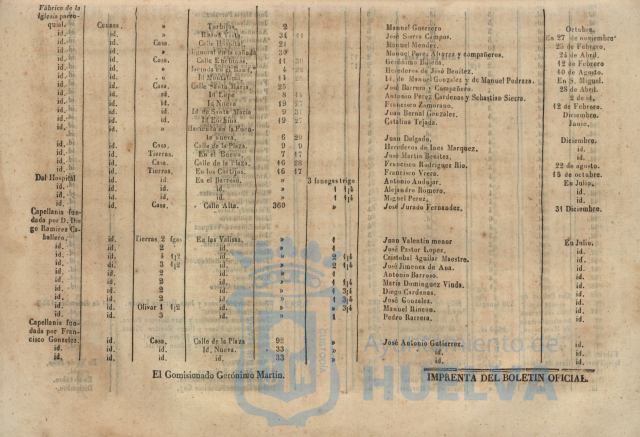 Fábrica de la
Iglesia parro-
quial. Censos. » Torbijos. 2 Manuel Guerrero Octubre.
id. id. » 34 José Sierra Campos. En 27 de noviembre
id. id. Casa. Calle Hospital. 21 Manuel Mendez. 25 de Febrero.
id. id. » 30 Manuel Perez Alvarez y compañeros. 24 de Abril.
id. id. Casa. Calle Enchina. 11 30 Gerónimo Buiena. 12 de Febrero
id. id. » 4 Herederos de José Benitez. 10 de Agosto.
id. id. » 14 Id. de Manuel Gonzalez y de Manuel Pedraza. En S. Miguel.
id. id. Casa. Calle Santa Maria. 25 José Barrera y Compañero. 28 de Abril.
id. id. id. 8 Antonio Perez Cardenas y Sebastian Sierra. 2 de id.
id. id. id. Id. Nueva. 19 27 Francisco Zamorano. 12 de Febrero.
id. id. id. Id. de Santa Maria 9 31 Juan Bernal Gonzalez. Diciembre.
id. id. id. Id. Enchina 19 27 Catalina Tejada. Junio.
id. id. » Herencia en la Puen-
te nueva. 6 29 Juan Delgado. Diciembre.
id. id. Casa. Calle de la Plaza. 9 9 Herederos de Ines Marquez. id.
id. id. Tierras. En el Buerro. 7 17 José Martin Benitez. id.
id. id. Casa. Calle de la Plaza. 16 28 Francisco Rodriguez Rio. 22 de agosto.
id. id. Tierras. En los Cortijos. 16 17 Francisco Vrera. 15 de octubre.
Del Hospital id. id. En el Barroso. » 3 fanegas trigo Antonio Andujar. En Julio.
id. id. id. id. » 1 1|4 Alejandro Romero. id.
id. id. id. id. » 1 1|4 Miguel Perez. id.
id. id. Casa. Calle Alta. 360 » José Jurado Fernandez. 31 Diciembre.
Capellania fun-
dada por D. Die
go Ramirez Ca-
ballero. id. Tierras 2 fgas En las Valisas. » 1 Juan Valentin menor En Julio.
id. id. 2 id. » 1 José Pastor Lopez. id.
id. id. 4 1|2 id. » 2 1|4 Cristobal Aguilar Maestre. id.
id. id. 3 1|2 id. » 2 1|4 José Jimenez de Ana. id.
id. id. 2 id. » 1 Antonio Barroso. id.
id. id. 2 id. » 1 1|4 Maria Dominguez Viuda. id.
id. id. 2 id. » 1 3|4 Diego Cardenas. id.
id. id. 2 id. » 1 3|4 José Gonzalez. id.
id. id. Olivar 1 1|2 id. » 3|4 Manuel Rincon. id.
id. id. 3 id. » 1 Pedro Barrera. id.
Capellania fun-
dada por Fran-
cisco Gonzalez. id. Casa. Calle de la Plaza 92 » José Antonio Gutierrez. id.
id. id. id. Id. Nueva. 33 » id. id.
id. id. id. id. 33 » id. id.
El Comisionado Gerónimo Martin.
IMPRENTA DEL BOLETIN OFICIAL.
Ayuntamiento de
HUELVA